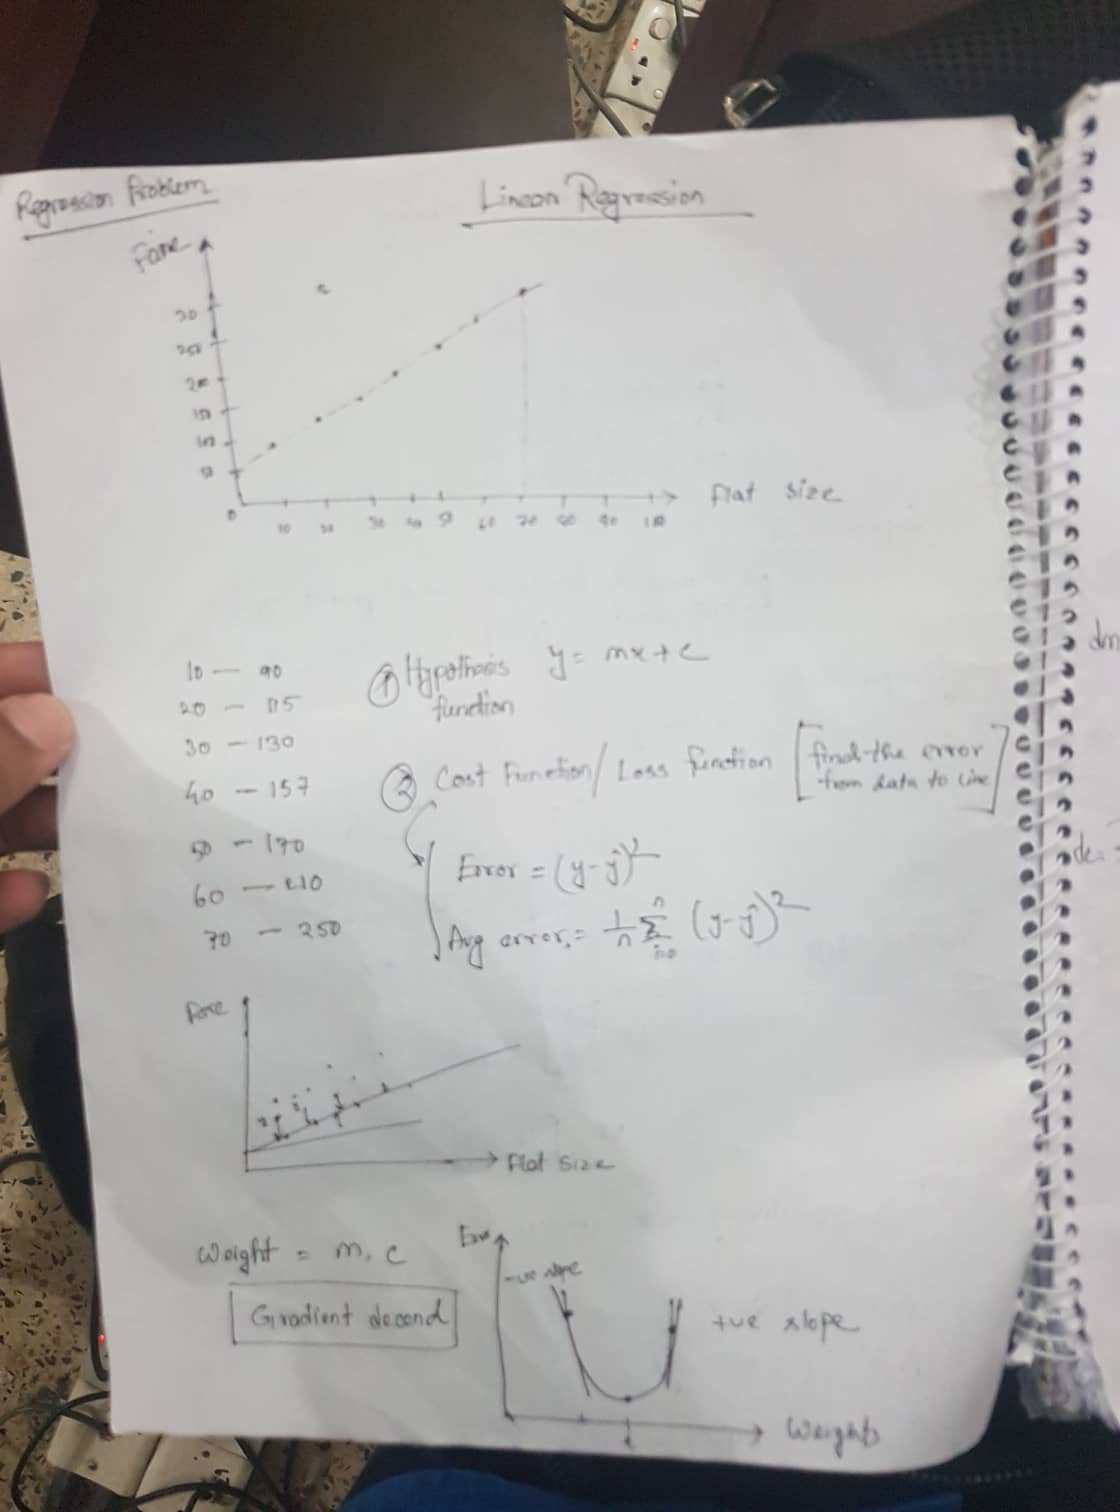 Regression Problem
Linear Regression
Fare
30
250
200
150
100
50
0 10 20 30 40 50 60 70 80 90 100
Flat size
10 — 90
20 — 115
30 — 130
40 — 157
50 — 190
60 — 210
70 — 250
① Hypothesis function y = mx + c
② Cost Function/ Loss function [find the error from data to line]
Error = (y-ŷ)²
Avg error = 1/n Σ (y-ŷ)²
n
i=0
Fare
Flat size
Weight = m, c
Gradient decend
Error
-ve slope
+ve slope
Weights